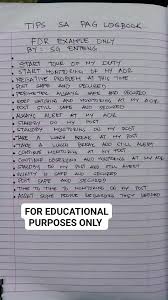 TIPS SA PAG LOGBOOK
FOR EXAMPLE ONLY
BY: SG ENTENG
START TOUR OF MY DUTY
START MONITORING OF MY AOR
NEGATIVE PROBLEM AT THIS TIME
POST SAFE AND SECURED
PERIMETER ALWAYS SAFE AND SECURED
KEEP WATCHING AND MONITORING AT MY AOR
STILL ALERT AND SECURED
ALWAYS ALERT AT MY AOR
STANDBY ON MY POST
STANDBY MONITORING ON MY POST
TAKE A LUNCH BREAK AT MY POST
TAKE A LUNCH BREAK AND STILL ALERT
CONTINUE MONITORING AT MY POST
CONTINUE OBSERVING AND MONITORING AT MY AOR
STANDBY ON MY POST AND STILL ALERT
VICINITY IS SAFE AND SECURED
POST SAFE AND SECURED
TIME TO TIME MONITORING ON MY POST
ASSIST SOME PEOPLE REGARDING THEY NEEDED
FOR EDUCATIONAL
PURPOSES ONLY